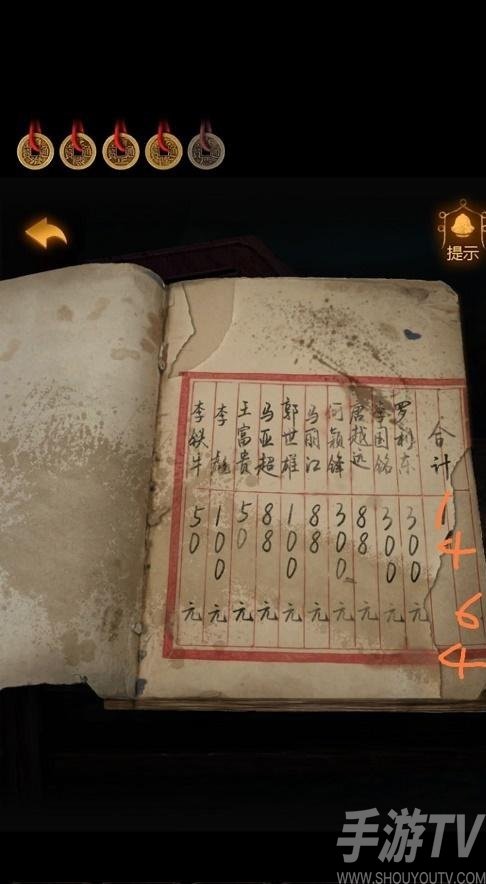 提示
李铁牛 50元
李彪 100元
王富贵 50元
马亚超 88元
郭世雄 100元
马丽江 88元
何颖锋 300元
唐越远 88元
国铭 300元
罗利东 300元
合计 1464
手游TV
WWW.SHOUYOUTV.COM